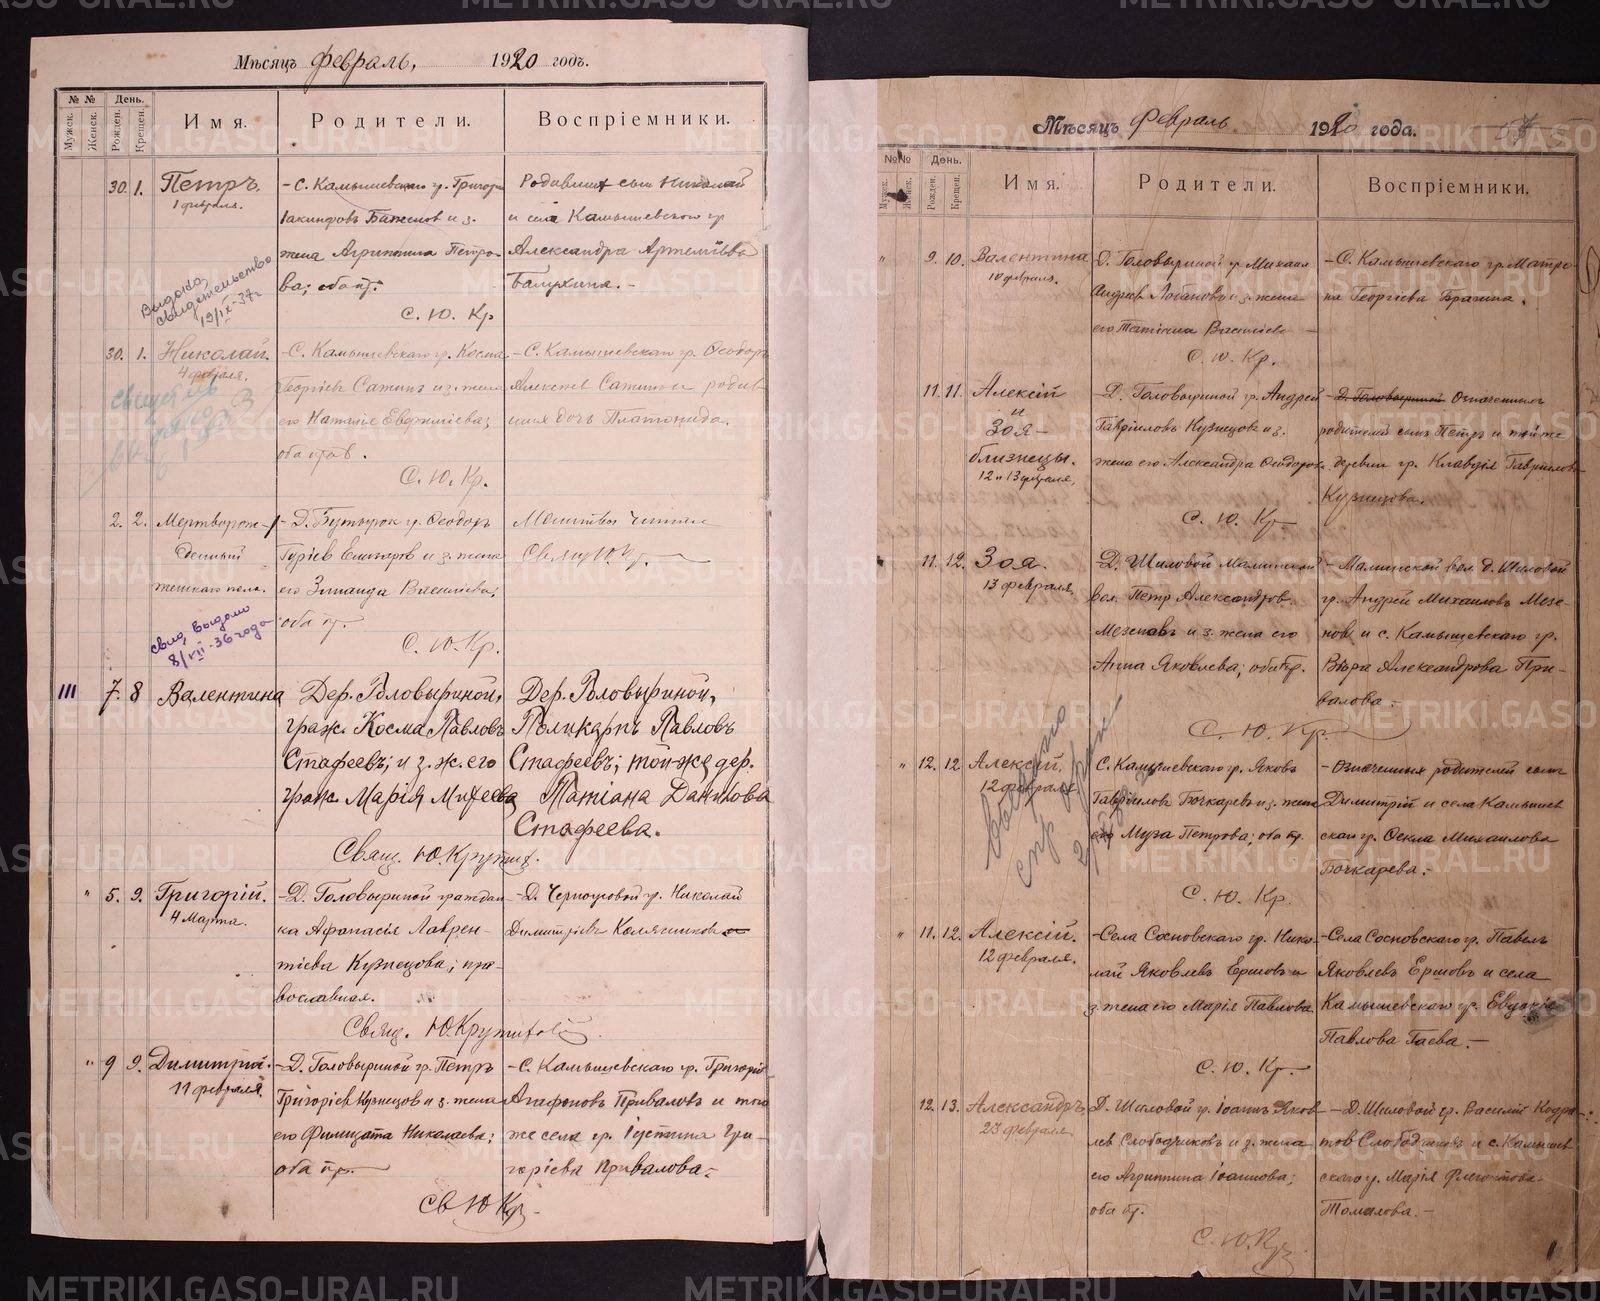 Мѣсяцъ февраль, 1920 годъ.
№ № День.
Мужск. Женск. Рожден. Крещен.
Имя. Родители. Воспріемники.
30. 1. Петръ.
1 февраля.
- С. Камышевскаго гр. Григорій
Іакинфовъ Баженовъ и з.
жена Агриппина Петро-
ва; оба пр.
С. Ю. Кр
сын Николай
и села Камышевскаго гр
Александра Артеміева
Балухина. -
Выдано
свидетельство
19/IX-37г
30. 1. Николай.
4 февраля.
- С. Камышевскаго гр. Косма
Георгіевъ Сатинъ и з. жена
его Наталія Евфиміева;
оба прав.
С. Ю. Кр.
- С. Камышевскаго гр. Ѳеодоръ
дочь Платонида.
2. 2. Мертворож-
денный
женскаго пола.
- Д. гр. Ѳеодоръ
и з. жена
его Зинаида Васильева;
оба пр.
С. Ю. Кр.
Молитвы читалъ
Свящ Ю. Кр.
свид. выдано
8/VII-36 года
III 7. 8 Валентина
Дер. Головыриной,
граж. Косма Павловъ
Стафеевъ; и з. ж. его
граж. Марія Михеева
Свящ. Ю. Крутих.
Дер. Головыриной,
Поликарпъ Павловъ
Стафеевъ; той же дер.
Татіана Данилова
Стафеева.
" 5. 9. Григорій.
4 Марта.
- Д. Головыриной граждан
ка Афанасія Лаврен-
тіева Кузнецова; пра-
вославная.
Свящ. Ю. Крутихов
- Д. Черноусовой гр. Николай
Димитріевъ Колясников
" 9 9. Димитрій.
11 февраля.
- Д. Головыриной гр. Петръ
Григоріев Кузнецов и з. жена
его Филицата Николаева;
оба пр.
- С. Камышевскаго гр. Григорій
Агафоновъ Приваловъ и того
же села гр. Іустина Гри-
горіева Привалова. -
Св Ю Кр. -
Мѣсяцъ февраль 1920 года.
№№ День.
Мужск. Женск. Рожден. Крещен.
Имя. Родители. Воспріемники.
" 9. 10. Валентина
10 февраля.
Д. Головыриной гр. Михаил
Андреев Лобановъ и з. жена
его Татіана Васильева
С. Ю. Кр.
- С. Камышевскаго гр. Матро-
на Георгіева Брагина.
11. 11. Алексій
и
Зоя -
близнецы.
12 и 13 февраля.
- Д. Головыриной гр. Андрей
Гавриловъ Кузнецовъ и з.
жена его Александра Ѳеодоров.
С. Ю. Кр
- Д. Головыриной Означенныхъ
родителей сынъ Петръ и той же
деревни гр. Клавдія Гаврилова
Кузнецова.
11. 12. Зоя.
13 февраля.
- Д. Шиловой Маминской
вол. Петр Александров
Мезеновъ и з. жена его
Анна Яковлева; оба пр.
- Маминской вол. д. Шиловой
гр. Андрей Михаиловъ Мезе-
новъ и с. Камышевскаго гр.
Вѣра Александрова При-
валова. -
С. Ю. Кр.
" 12. 12. Алексій.
12 февраля
С. Камышевскаго гр. Яковъ
Гавриловъ Бочкаревъ и з. жена
его Муза Петрова; оба пр.
С. Ю. Кр.
- Означенныхъ родителей сынъ
Димитрій и села Камышев
скаго гр. Ѳекла Михаилова
Бочкарева. -
Выдано
спр
" 11. 12. Алексій.
12 февраля.
- Села Сосновскаго гр. Нико-
лай Яковлевъ Ершовъ и
з. жена его Марія Павлова
С. Ю. Кр. -
- Села Сосновскаго гр. Павелъ
Яковлевъ Ершовъ и села
Камышевскаго гр. Евдокія
Павлова Гаева. -
12. 13. Александръ
23 февраля
Д. Шиловой гр. Іоаннъ Яков-
лев Слободчиковъ и з. жена
его Агриппина Іоаннова;
оба пр.
С. Ю. Кр.
- Д. Шиловой гр. Василій Кодра-
товъ Слободчиковъ и с. Камышев
скаго гр. Марія
Томилова. -
METRIKI.GASO-URAL.RU